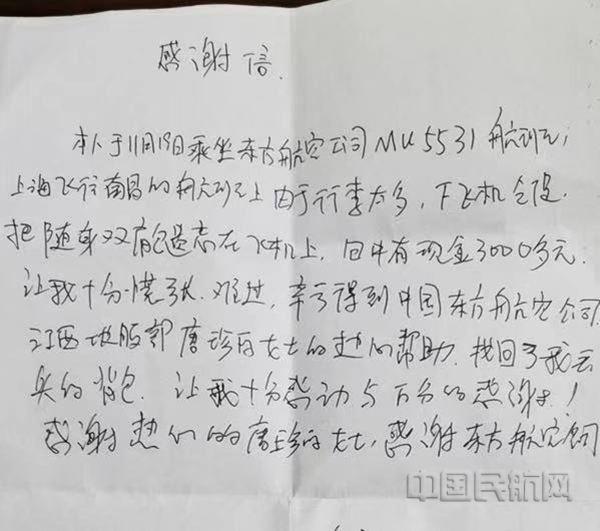 感谢信.
本人于11月19日乘坐东方航空公司MU5531航班,
上海飞往南昌的航班上由于行李太多,下飞机仓促.
把随身双肩包遗忘在飞机上,包中有现金3000多元.
让我十分慌张.难过,幸亏得到中国东方航空公司
江西地服部唐珍女士的热心帮助.找回了我丢
失的背包.让我十分感动与万分的感谢!
感谢热心的唐珍女士,感谢东方航空公司
中国民航网